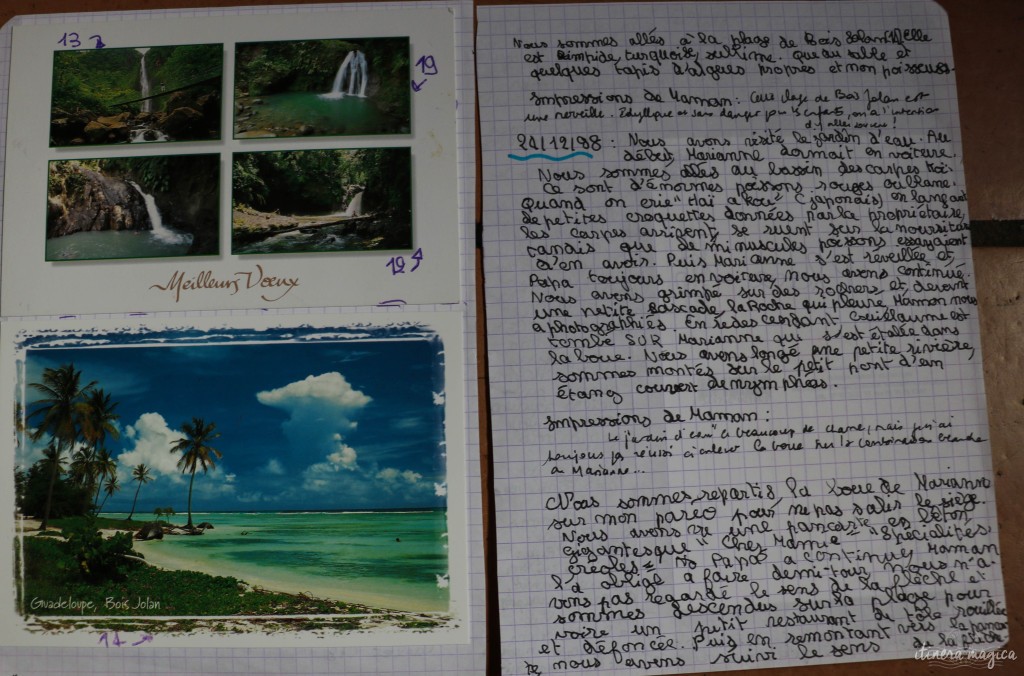 13
19
12
Meilleurs Vœux
Guadeloupe, Bois Jolan
11
Nous sommes allés à la plage de Bois Jolan. Elle
est limpide, turquoise, sublime. Que du sable et
quelques tapis d'algues propres et non poisseuses.
Impressions de Maman : Cette plage de Bois Jolan est
une merveille. Idyllique et sans danger pour les enfants, on a l'intention
d'y aller souvent !
21/12/98 : Nous avons visité le jardin d'eau. Au
début, Marianne dormait en voiture.
Nous sommes allés au bassin des carpes koï.
Ce sont d'énormes poissons rouges ou blanc.
Quand on crie "Haï a kou" (japonais) en lançant
de petites croquettes données par la propriétaire,
les carpes arrigent, se ruent sur la nourriture
tandis que de minuscules poissons essayaient
d'en avoir. Puis Marianne s'est réveillée et,
Papa toujours en voiture, nous avons continué.
Nous avons grimpé sur des rochers et, devant
une petite cascade, la Roche qui pleure, Maman nous
a photographiés. En redescendant Guillaume est
tombé SUR Marianne qui s'est étalée dans
la boue. Nous avons longé une petite rivière,
sommes montés sur le petit pont d'un
étang couvert de nymphéas.
Impressions de Maman :
Le jardin d'eau a beaucoup de charme, mais j'ai
toujours pas réussi à enlever la boue sur la combinaison blanche
de Marianne...
Nous sommes repartis, la boue de Marianne
sur mon paréo pour ne pas salir le siège.
Nous avons vu une pancarte en béton
gigantesque "Chez Mamie" "Spécialités
créoles" Papa a continué, Maman
l'a obligé à faire demi-tour. Nous n'a-
vons pas regardé le sens de la flèche et
sommes descendus sur la plage pour
voire un petit restaurant de tôle rouillée
et défoncée. Puis en remontant vers la pancar
nous avons suivi le sens de la flèche
itinera magica